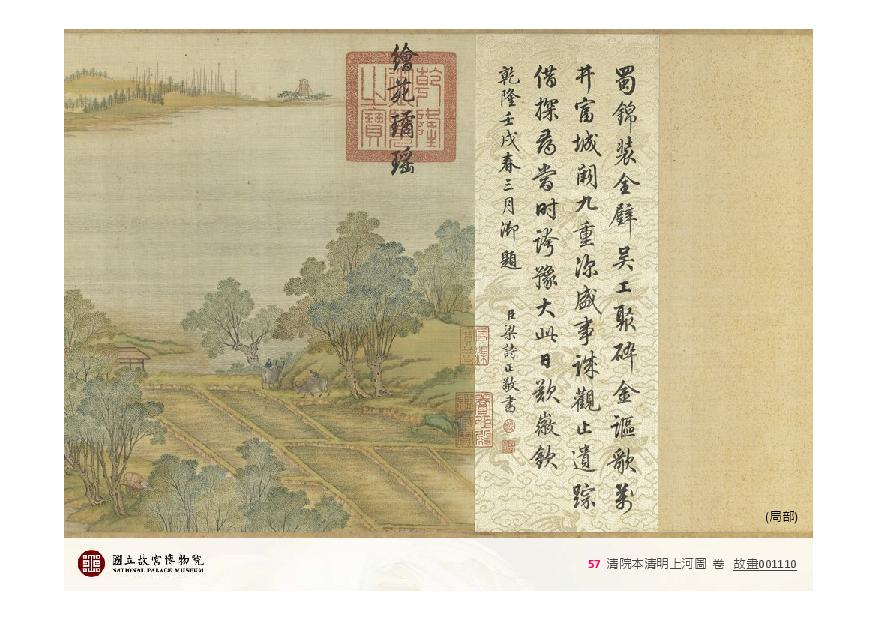 蜀錦装全璧吳工聚碎金謳歌萬
井富城闕九重深盛事誠觀止遺踪
借探尋當時誇豫大此日歎徽欽
乾隆壬戌春三月御題
臣梁詩正敬書
繪苑璚瑤
乾隆御覽之寶
(局部)
國立故宮博物院
NATIONAL PALACE MUSEUM
57 清院本清明上河圖 卷 故畫001110